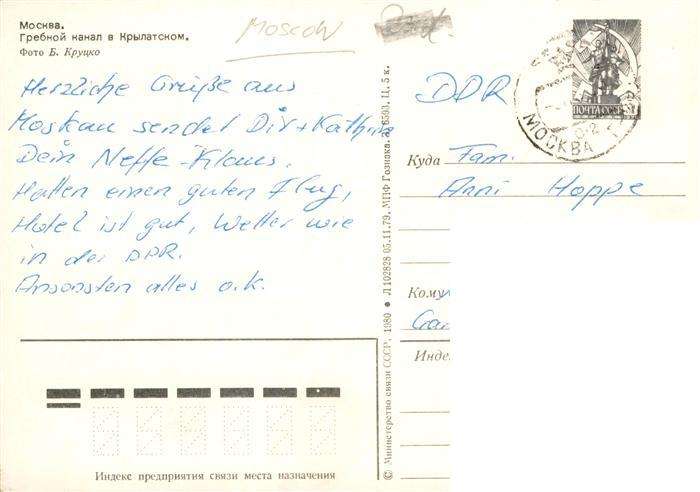 Москва.
Гребной канал в Крылатском.
Фото Б. Круцко
Moscow
Herzliche Grüße aus
Moskau sendet Dir + Kathrin
Dein Neffe - Klaus.
Hatten einen guten Flug,
Hotel ist gut, Wetter wie
in der DDR.
Ansonsten alles o.k.
Индекс предприятия связи места назначения
© Министерство связи СССР, 1980 ● Л 102828 05.11.79. МПФ Гознака. З. 6593. Ц. 5 к.
DDR
ПОЧТА СССР
МОСКВА
Куда Fam.
Anni Hoppe
Кому
Инде